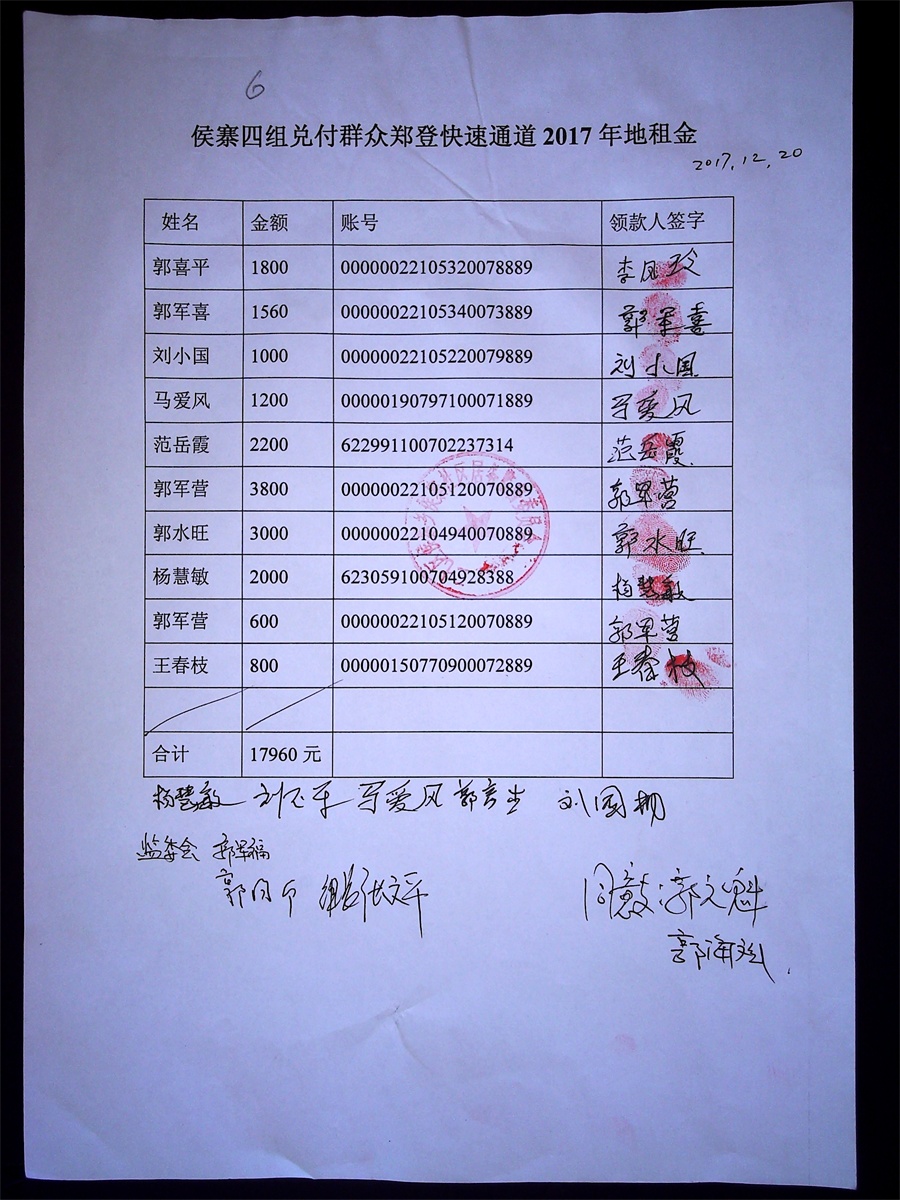 6
侯寨四组兑付群众郑登快速通道 2017 年地租金
2017.12.20
姓名 金额 账号 领款人签字
郭喜平 1800 00000022105320078889 李凤玲
郭军喜 1560 00000022105340073889 郭军喜
刘小国 1000 00000022105220079889 刘小国
马爱风 1200 00000190797100071889 马爱风
范岳霞 2200 622991100702237314 范岳霞
郭军营 3800 00000022105120070889 郭军营
郭水旺 3000 00000022104940070889 郭水旺
杨慧敏 2000 623059100704928388 杨慧敏
郭军营 600 00000022105120070889 郭军营
王春枝 800 00000150770900072889 王春枝
合计 17960 元
杨慧敏 马爱风 刘国拥
监委会 郭军福
张文平 同意：郭文魁
郭海斌